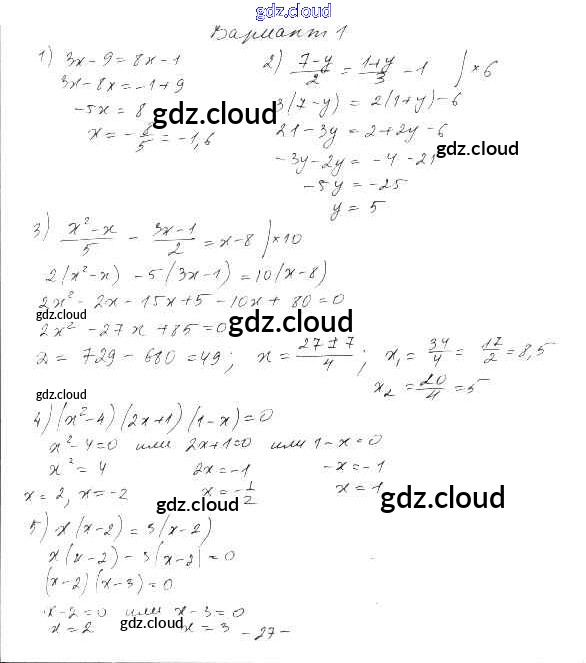 gdz.cloud
Вариант 1
1) 3x - 9 = 8x - 1
3x - 8x = -1 + 9
-5x = 8
x = -8/5 = -1,6
gdz.cloud
2) (7-y)/2 = (1+y)/3 - 1 | ×6
3(7-y) = 2(1+y) - 6
21 - 3y = 2 + 2y - 6
gdz.cloud
-3y - 2y = -4 - 21
-5y = -25
y = 5
3) (x² - x)/5 - (3x - 1)/2 = x - 8 | ×10
2(x² - x) - 5(3x - 1) = 10(x - 8)
2x² - 2x - 15x + 5 - 10x + 80 = 0
gdz.cloud
gdz.cloud
2x² - 27x + 85 = 0
D = 729 - 680 = 49; x = (27 ± 7)/4; x₁ = 34/4 = 17/2 = 8,5
x₂ = 20/4 = 5
gdz.cloud
4) (x² - 4)(2x + 1)(1 - x) = 0
x² - 4 = 0 или 2x + 1 = 0 или 1 - x = 0
x² = 4 2x = -1 -x = -1
x = 2, x = -2 x = -1/2 x = 1
gdz.cloud
gdz.cloud
5) x(x - 2) = 3(x - 2)
x(x - 2) - 3(x - 2) = 0
(x - 2)(x - 3) = 0
gdz.cloud
x - 2 = 0 или x - 3 = 0
x = 2 x = 3
gdz.cloud
- 27 -